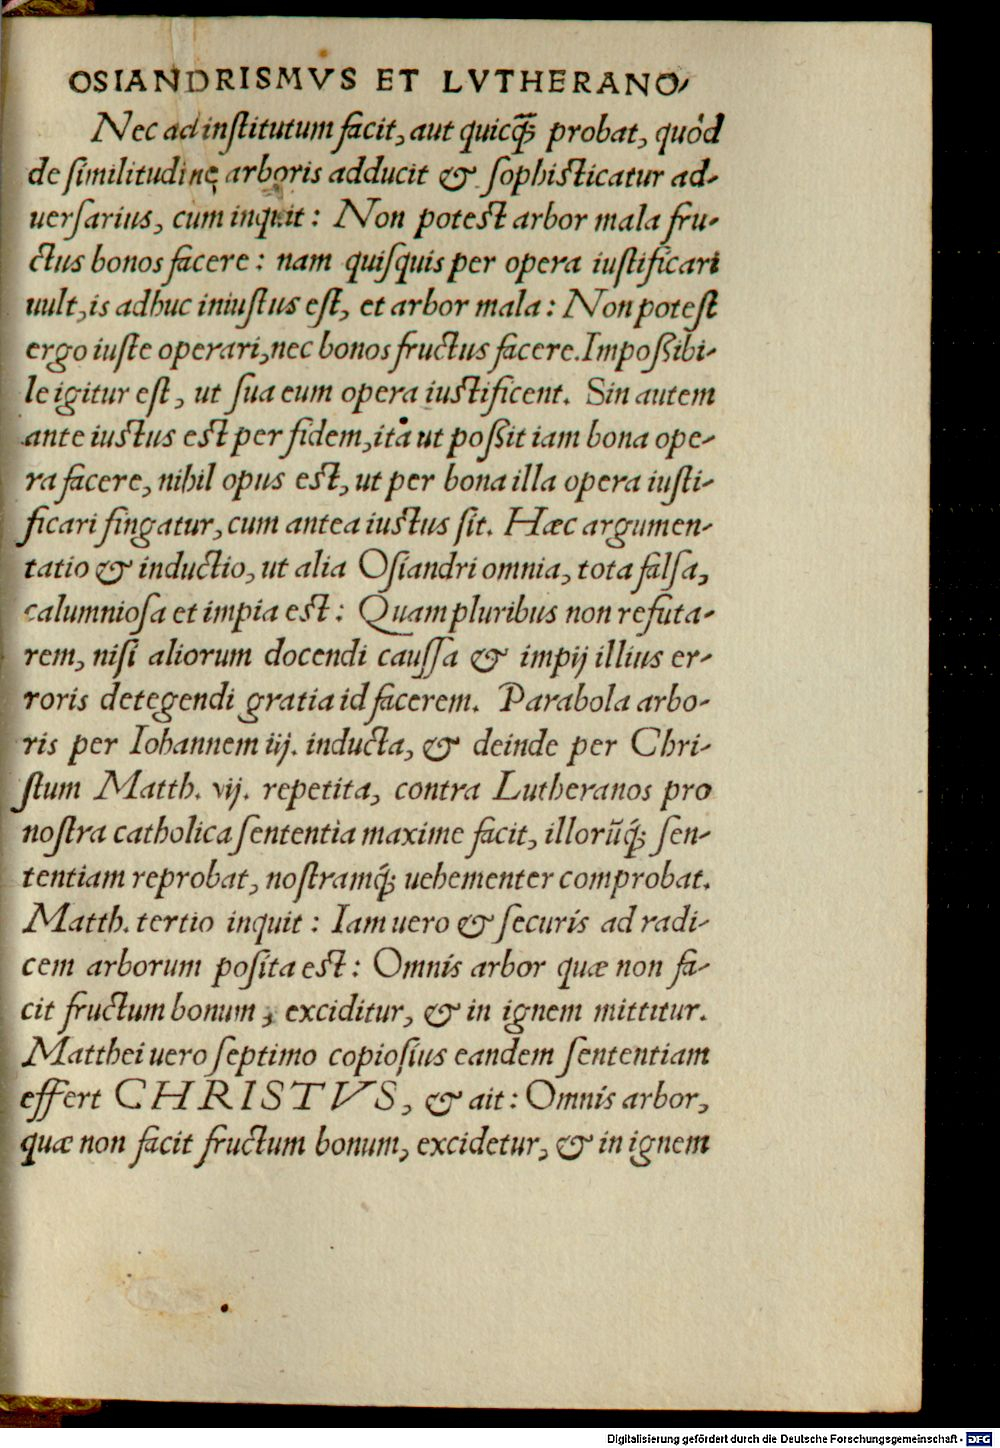 OSIANDRISMVS ET LVTHERANO-
Nec ad institutum facit, aut quicq́; probat, quòd
de similitudine arboris adducit & sophisticatur ad-
uersarius, cum inquit: Non potest arbor mala fru-
ctus bonos facere: nam quisquis per opera iustificari
uult, is adhuc iniustus est, et arbor mala: Non potest
ergo iuste operari, nec bonos fructus facere. Impoßibi-
le igitur est, ut sua eum opera iustificent. Sin autem
ante iustus est per fidem, ita ut poßit iam bona ope-
ra facere, nihil opus est, ut per bona illa opera iusti-
ficari fingatur, cum antea iustus sit. Hæc argumen-
tatio & inductio, ut alia Osiandri omnia, tota falsa,
calumniosa et impia est: Quam pluribus non refuta-
rem, nisi aliorum docendi caussa & impij illius er-
roris detegendi gratia id facerem. Parabola arbo-
ris per Iohannem iij. inducta, & deinde per Chri-
stum Matth. vij. repetita, contra Lutheranos pro
nostra catholica sententia maxime facit, illorũq́; sen-
tentiam reprobat, nostramq́; uehementer comprobat.
Matth. tertio inquit: Iam uero & securis ad radi-
cem arborum posita est: Omnis arbor quæ non fa-
cit fructum bonum, exciditur, & in ignem mittitur.
Matthei uero septimo copiosius eandem sententiam
effert CHRISTVS, & ait: Omnis arbor,
quæ non facit fructum bonum, excidetur, & in ignem
Digitalisierung gefördert durch die Deutsche Forschungsgemeinschaft - DFG